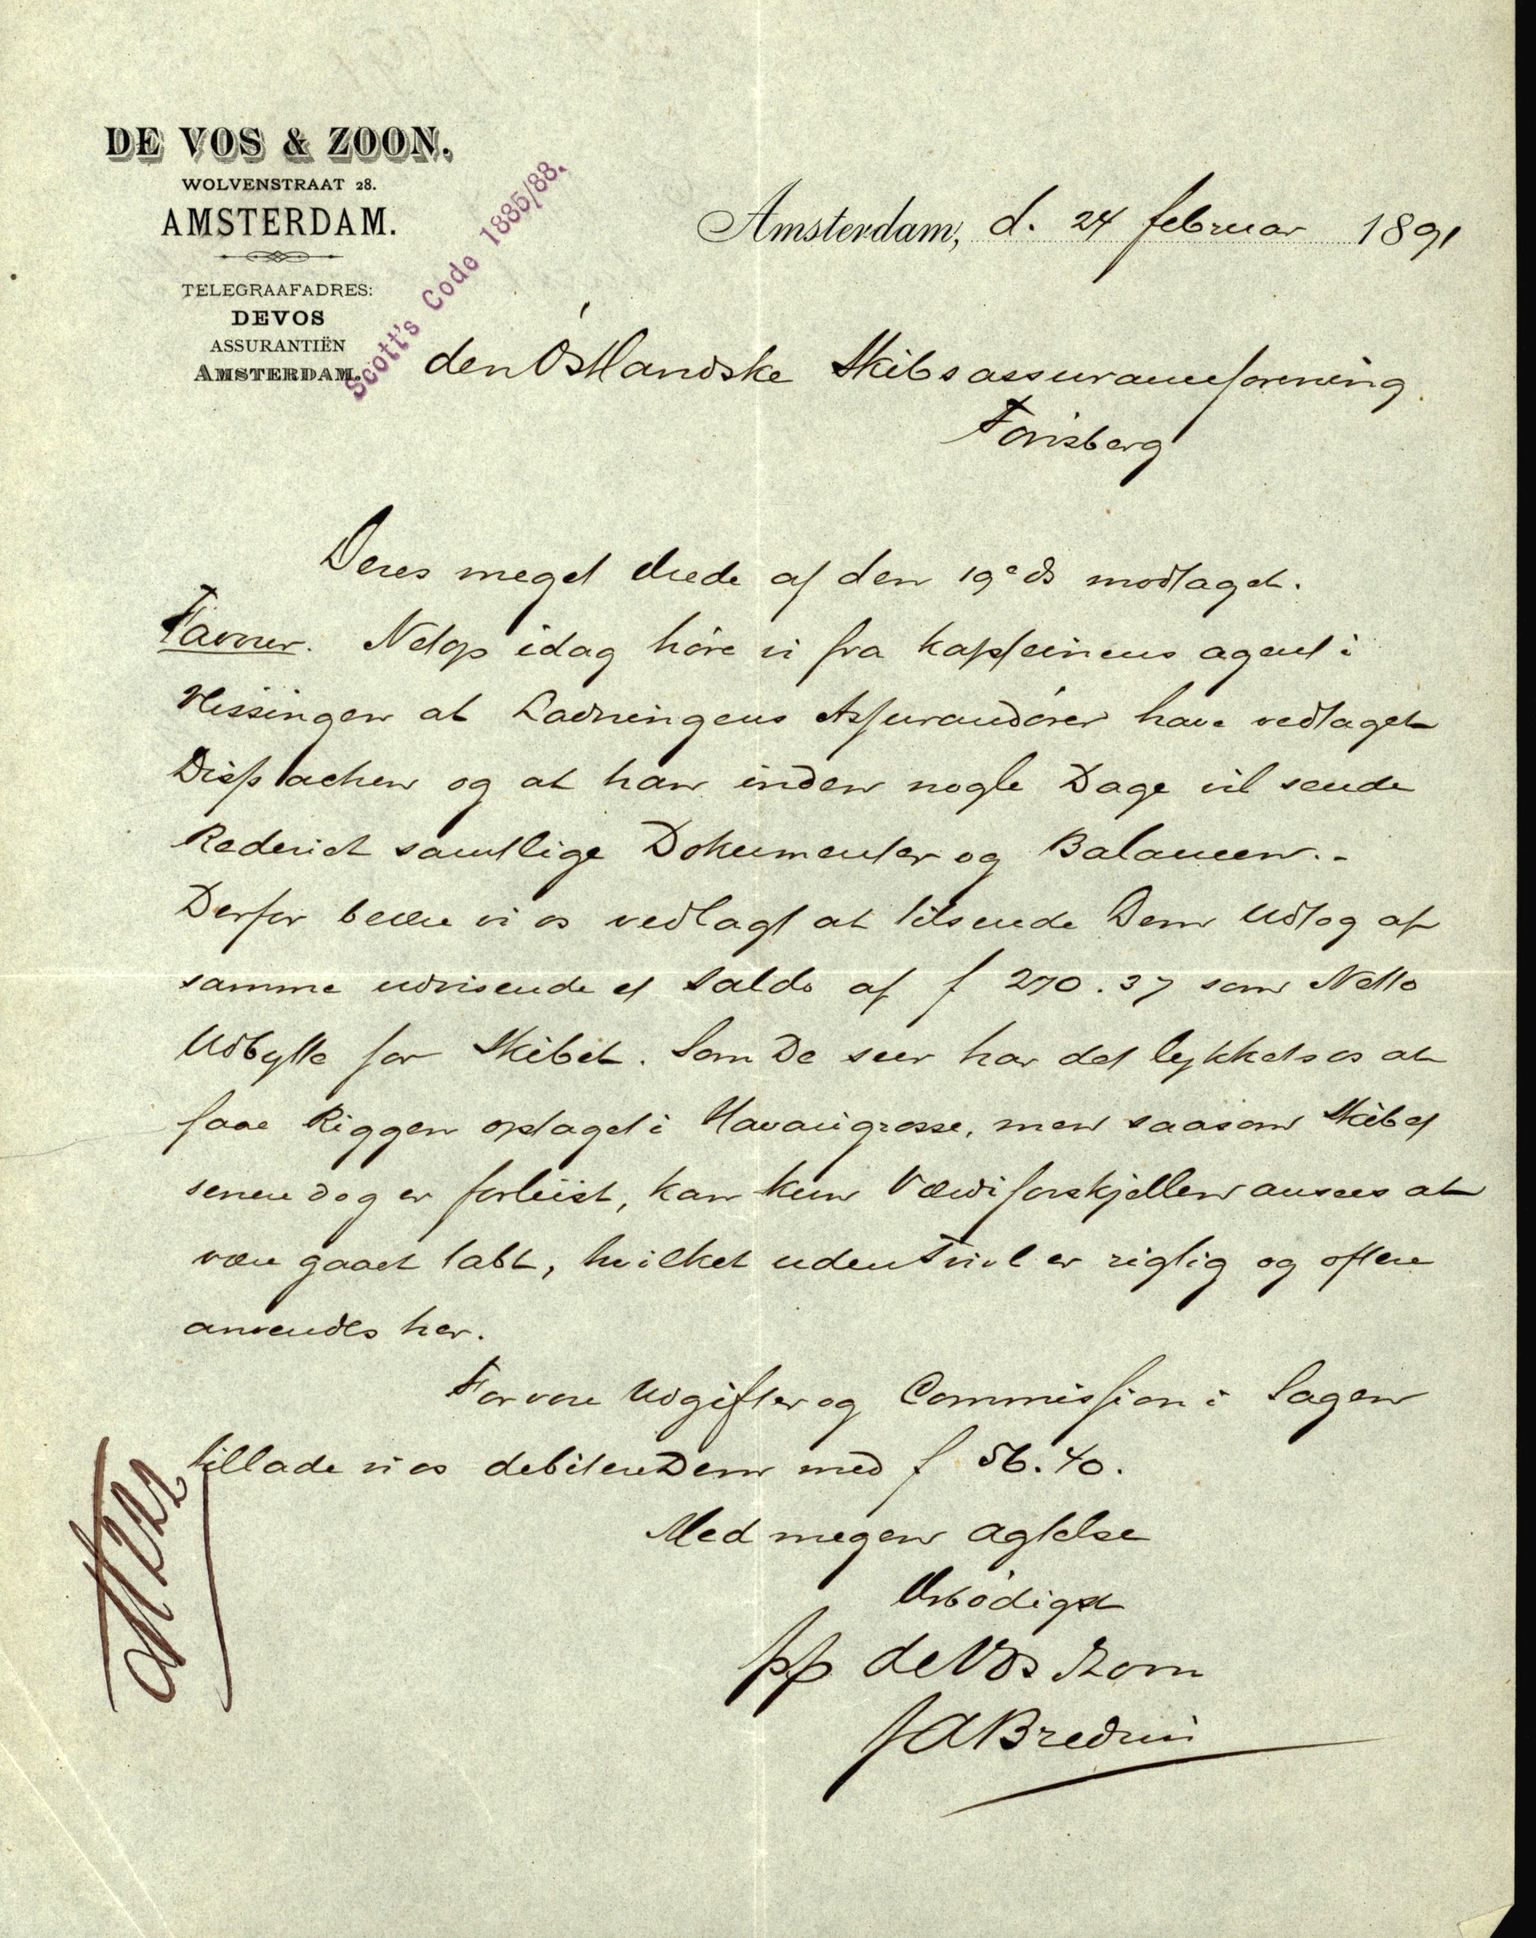 DE VOS & ZOON.
WOLVENSTRAAT 28.
AMSTERDAM.
TELEGRAAFADRES:
DEVOS
ASSURANTIËN
AMSTERDAM.
Scott's Code 1885/88.
Amsterdam, d. 24 februar 1891
den Östlandske Skibsassuranceforening
Tönsberg
Deres meget ærede af den 19e ds modtaget.
Favour. Netop idag höre vi fra kapteinens agent i
Vlissingen at Ladningens Assurandörer have vedtaget
Dispachen og at han inden nogle Dage vil sende
Rederiet samtlige Dokumenter og Balancen.-
Derfor beære vi os vedlagt at tilsende Dem Udtog af
samme udvisende et Saldo af f 270.37 som Netto
Udbytte for Skibet. Som De seer har det lykkets os at
faae Riggen optaget i Havarigrosse, men saasom Skibet
senere dog er forliist, kan kun Værdiforskjellen ansees at
være gaaet tabt, hvilket uden Tvivl er rigtig og oftere
anvendes her.
For vore Udgifter og Commission i Sagen
tillade vi os debitere Dem med f 56.40.
Med megen agtelse
Ærbödigst
pp de Vos & Zoon